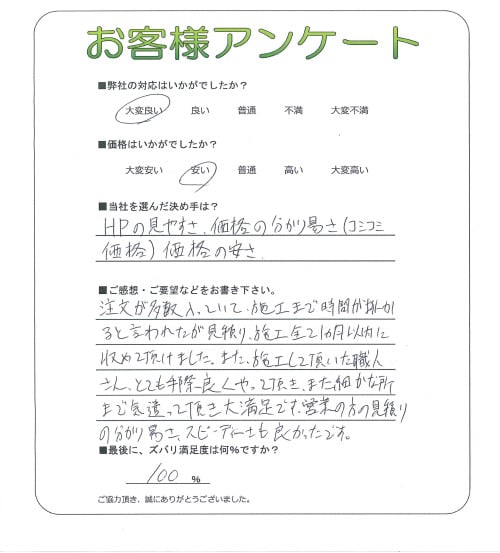 お客様アンケート
■弊社の対応はいかがでしたか？
大変良い 良い 普通 不満 大変不満
■価格はいかがでしたか？
大変安い 安い 普通 高い 大変高い
■当社を選んだ決め手は？
HPの見やすさ、価格の分かり易さ(コミコミ
価格) 価格の安さ
■ご感想・ご要望などをお書き下さい。
注文が多数入っていて、施工まで時間が掛か
ると言われたが見積り、施工全て1ヵ月以内に
収めて頂けました。また、施工して頂いた職人
さん、とても手際良くやって頂き、また細かな所
まで気遣って頂き大満足です。営業の方の見積り
の分かり易さ、スピーディーさも良かったです。
■最後に、ズバリ満足度は何%ですか？
100 %
ご協力頂き、誠にありがとうございました。